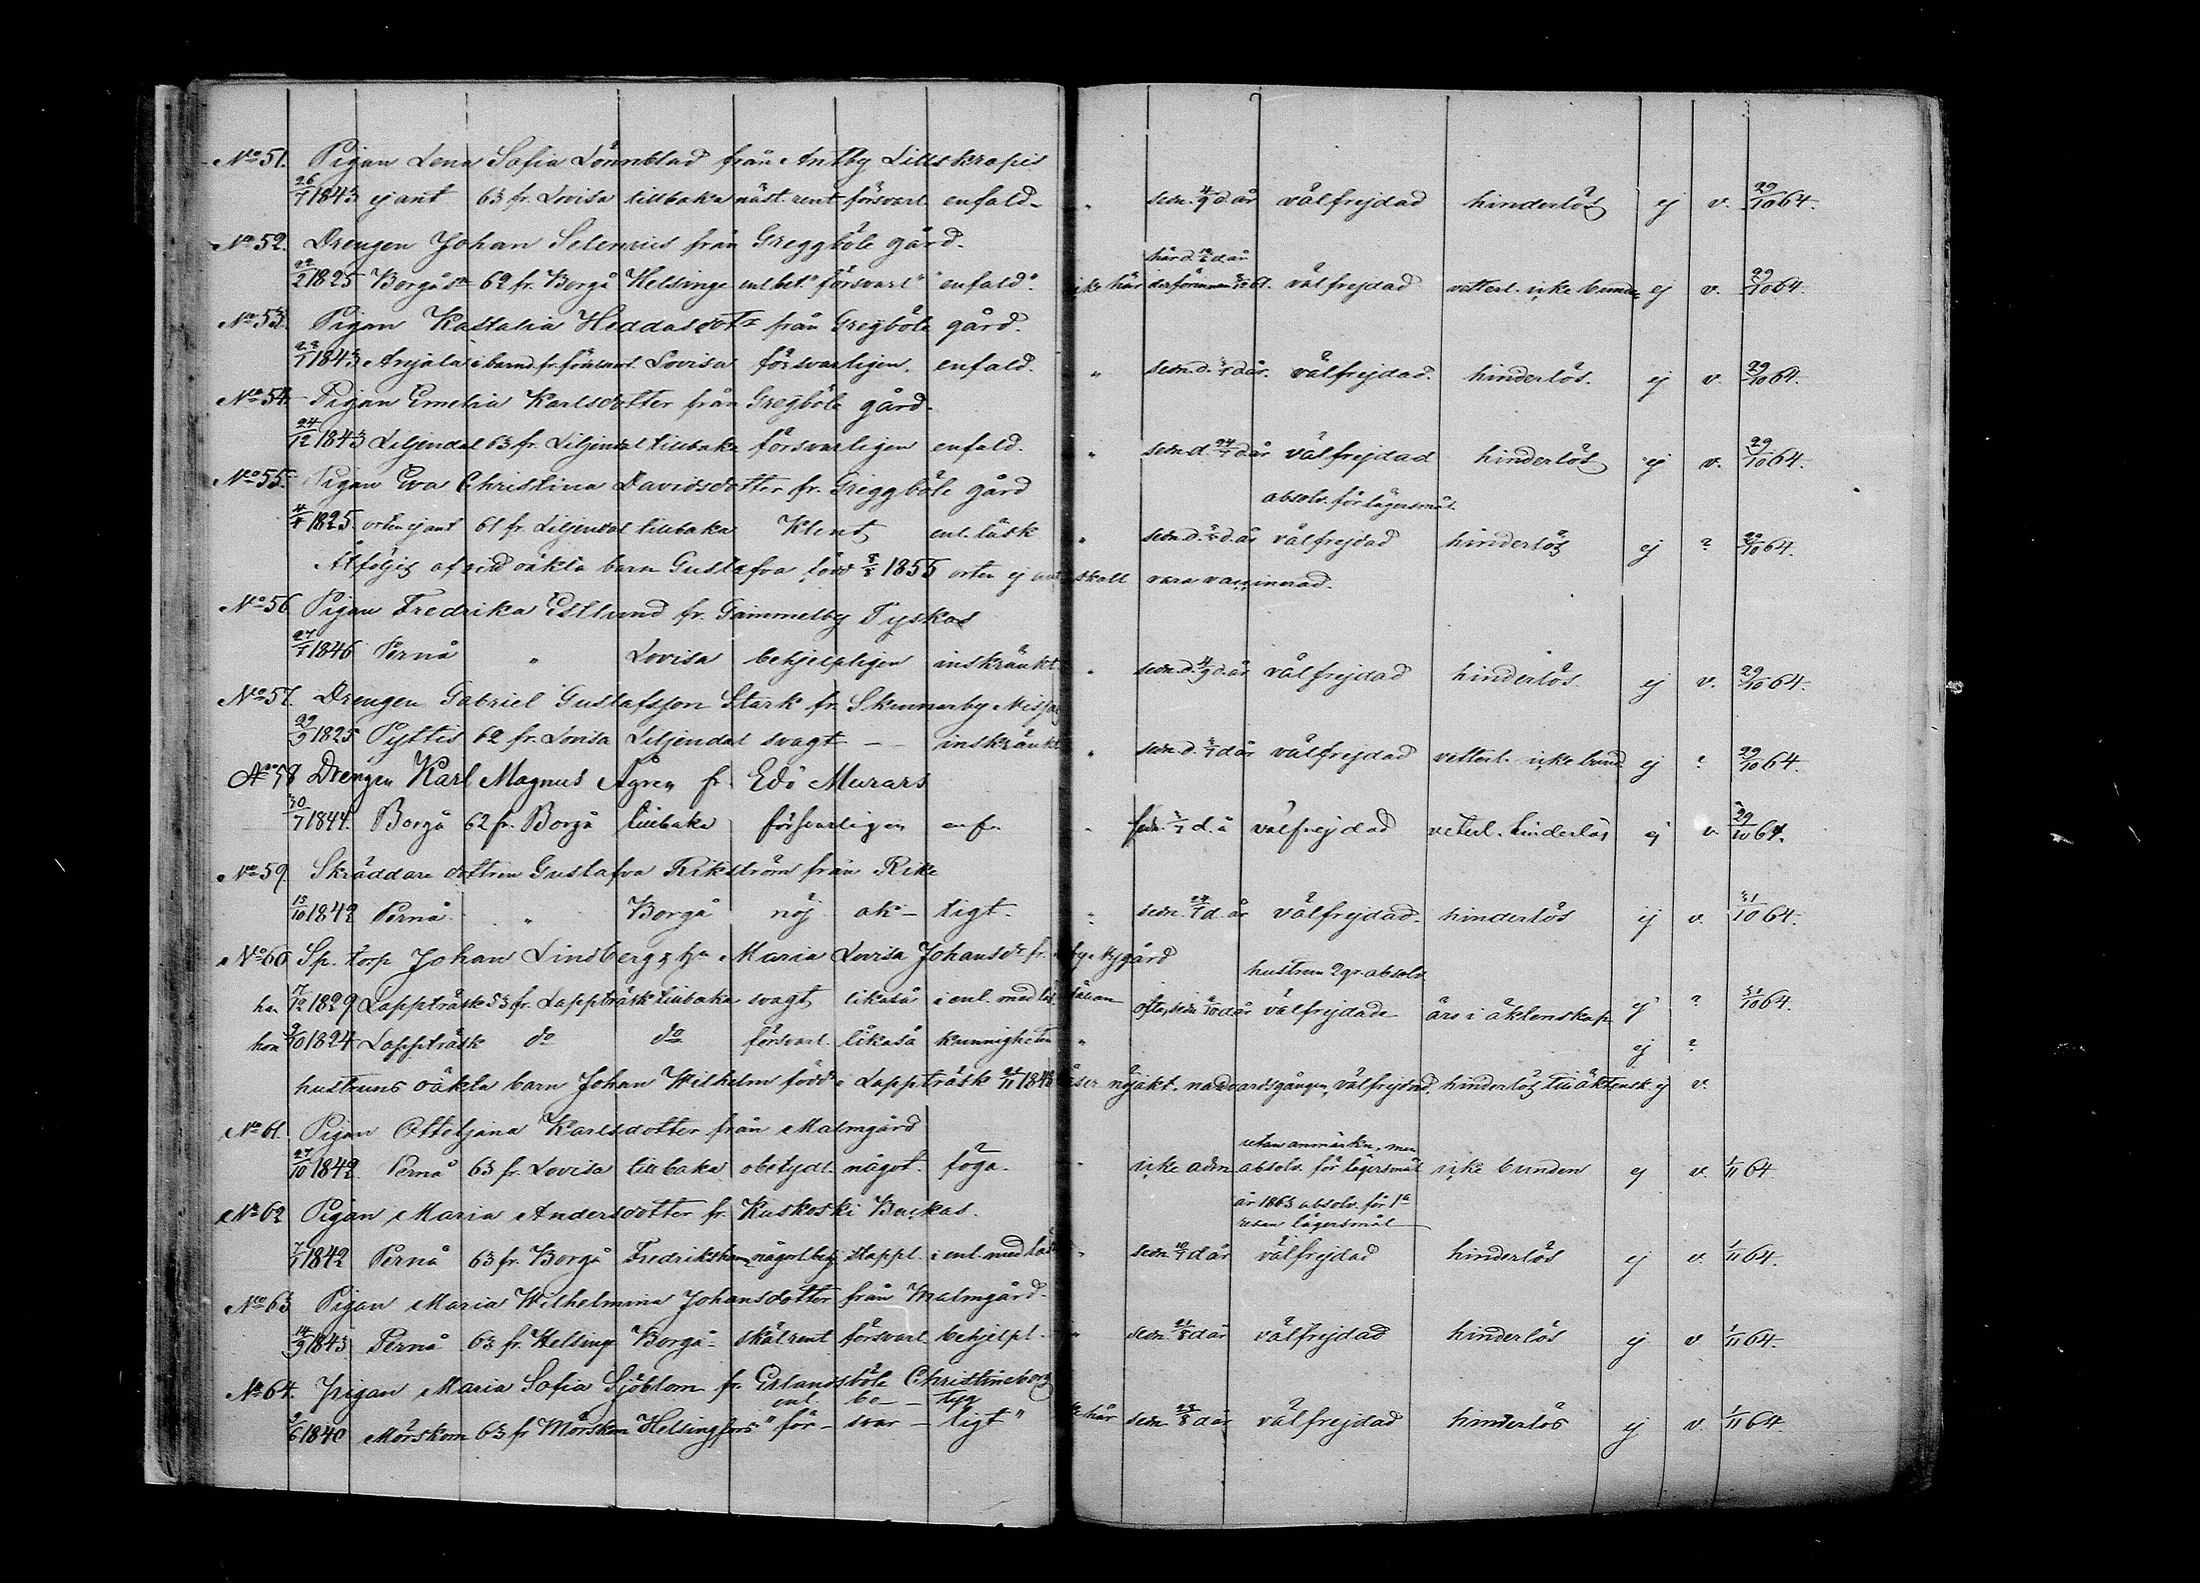 No 51. Pigan Lena Sofia Lönnblad från Antby Lillskrapis
26/7 1843 ej ant 63 fr. Lovisa tillbaka näst. rent försvarl. enfald. " sedn. 4/9 d. år välfrejdad hinderlös ej v. 29/10 64.
No 52. Drengen Johan Selenius från Greggböle gård.
härd. d år
22/2 1825 Borgå 62 fr. Borgå Helsinge enl. bet. "försvarl" "enfald." icke här välfrejdad vetterl. icke bunden ej v. 29/10 64.
No 53. Pigan Kastasia Heddasdotr från Gregböle gård.
1843 Anjala Lovisa försvarligen. enfald. " sedn. d. d. år. välfrejdad. hinderlös. ej v. 29/10 64.
No 54. Pigan Emelia Karlsdotter från Gregböle gård.
24/12 1843 Liljendal 63 fr. Liljendal tillbaka försvarligen enfald. " sedn. d. 24/7 d år välfrejdad hinderlös ej v. 29/10 64.
No 55. Pigan Eva Christina Davidsdotter fr. Greggböle gård
absolv. för lägersmål.
4/4 1825. orten ej ant 61 fr. Liljendal tillbaka Klent enl. läsk " sedn. d. d. år välfrejdad hinderlös ej ? 29/10 64.
Åtföljes af sitt oäkta barn Gustafva född 1855 orten ej ant skall vara vaccinerad.
No 56. Pigan Fredrika Estlund fr. Gammelby Tyskas
1846 Pernå " Lovisa behjelpligen inskränkt " sedn. d. 4/9 d. år välfrejdad hinderlös ej v. 29/10 64.
No 57. Drengen Gabriel Gustafsson Stark fr. Skinnarby
29/9 1825 Pyttis 62 fr. Lovisa Liljendal svagt — — inskränkt " sedn. d. d år välfrejdad vetterl. icke bund. ej ? 29/10 64.
No 58 Drengen Karl Magnus Ågren fr. Edö Murars
30/7 1844. Borgå 62 fr. Borgå tillbaka försvarligen enf. " sedn. d. å välfrejdad veterl. hinderlös ej v. 29/10 64.
No 59. Skräddare dottren Gustafva Rikström från Rike
13/10 1842 Pernå " Borgå nöj ak — tigt. " sedn. d. år välfrejdad. hinderlös ej v. 31/10 64.
No 60 Sp. torp Johan Lindberg, hu Maria Lovisa Johansdr fr. by Nygård
hustrun 2 gr. absolv.
han 17/12 1829 Lappträsk 53 fr. Lappträsk tillbaka svagt likaså i enl. med läs. ofta, sedn d år välfrejdade äro i äktenskap ej ? 31/10 64.
hon 9/10 1824 Lappträsk do do försvarl. likaså kunnigheten " ej ?
hustruns oäkta barn Johan Wilhelm född i Lappträsk 1843 läser nöjakt. nattvardsgången, välfrejdad, hinderlös till äktensk. ej v.
No 61. Pigan Ottetjana Karlsdotter från Malmgård
utan anmärkn, men
27/10 1842. Pernå 63 fr. Lovisa tillbaka obetydl. något. föga. " icke adm. absolv. för lägersmål icke bunden ej v. 1/11 64
No 62 Pigan Maria Andersdotter fr. Kuskoski Backas.
år 1863 absolv. för 1a
resan lägersmål
1842 Pernå 63 fr. Borgå Fredrikshamn någorl. beg. stappl. i enl. med läsn " sedn. d år välfrejdad hinderlös ej v. 1/11 64.
No 63 Pigan Maria Wilhelmina Johansdotter från Malmgård.
14/9 1843 Pernå 63 fr. Helsing Borgå. skäl. rent försvarl behjelpl. " sedn. d år välfrejdad hinderlös ej v 1/11 64.
No 64. Pigan Maria Sofia Sjöblom fr. Erlandsböle Christineborg
enl. be — tyg
9/6 1840 Mörskom 63 fr Mörskom Helsingfors "för — svar — ligt" här sedn d år välfrejdad hinderlös ej v. 1/11 64.